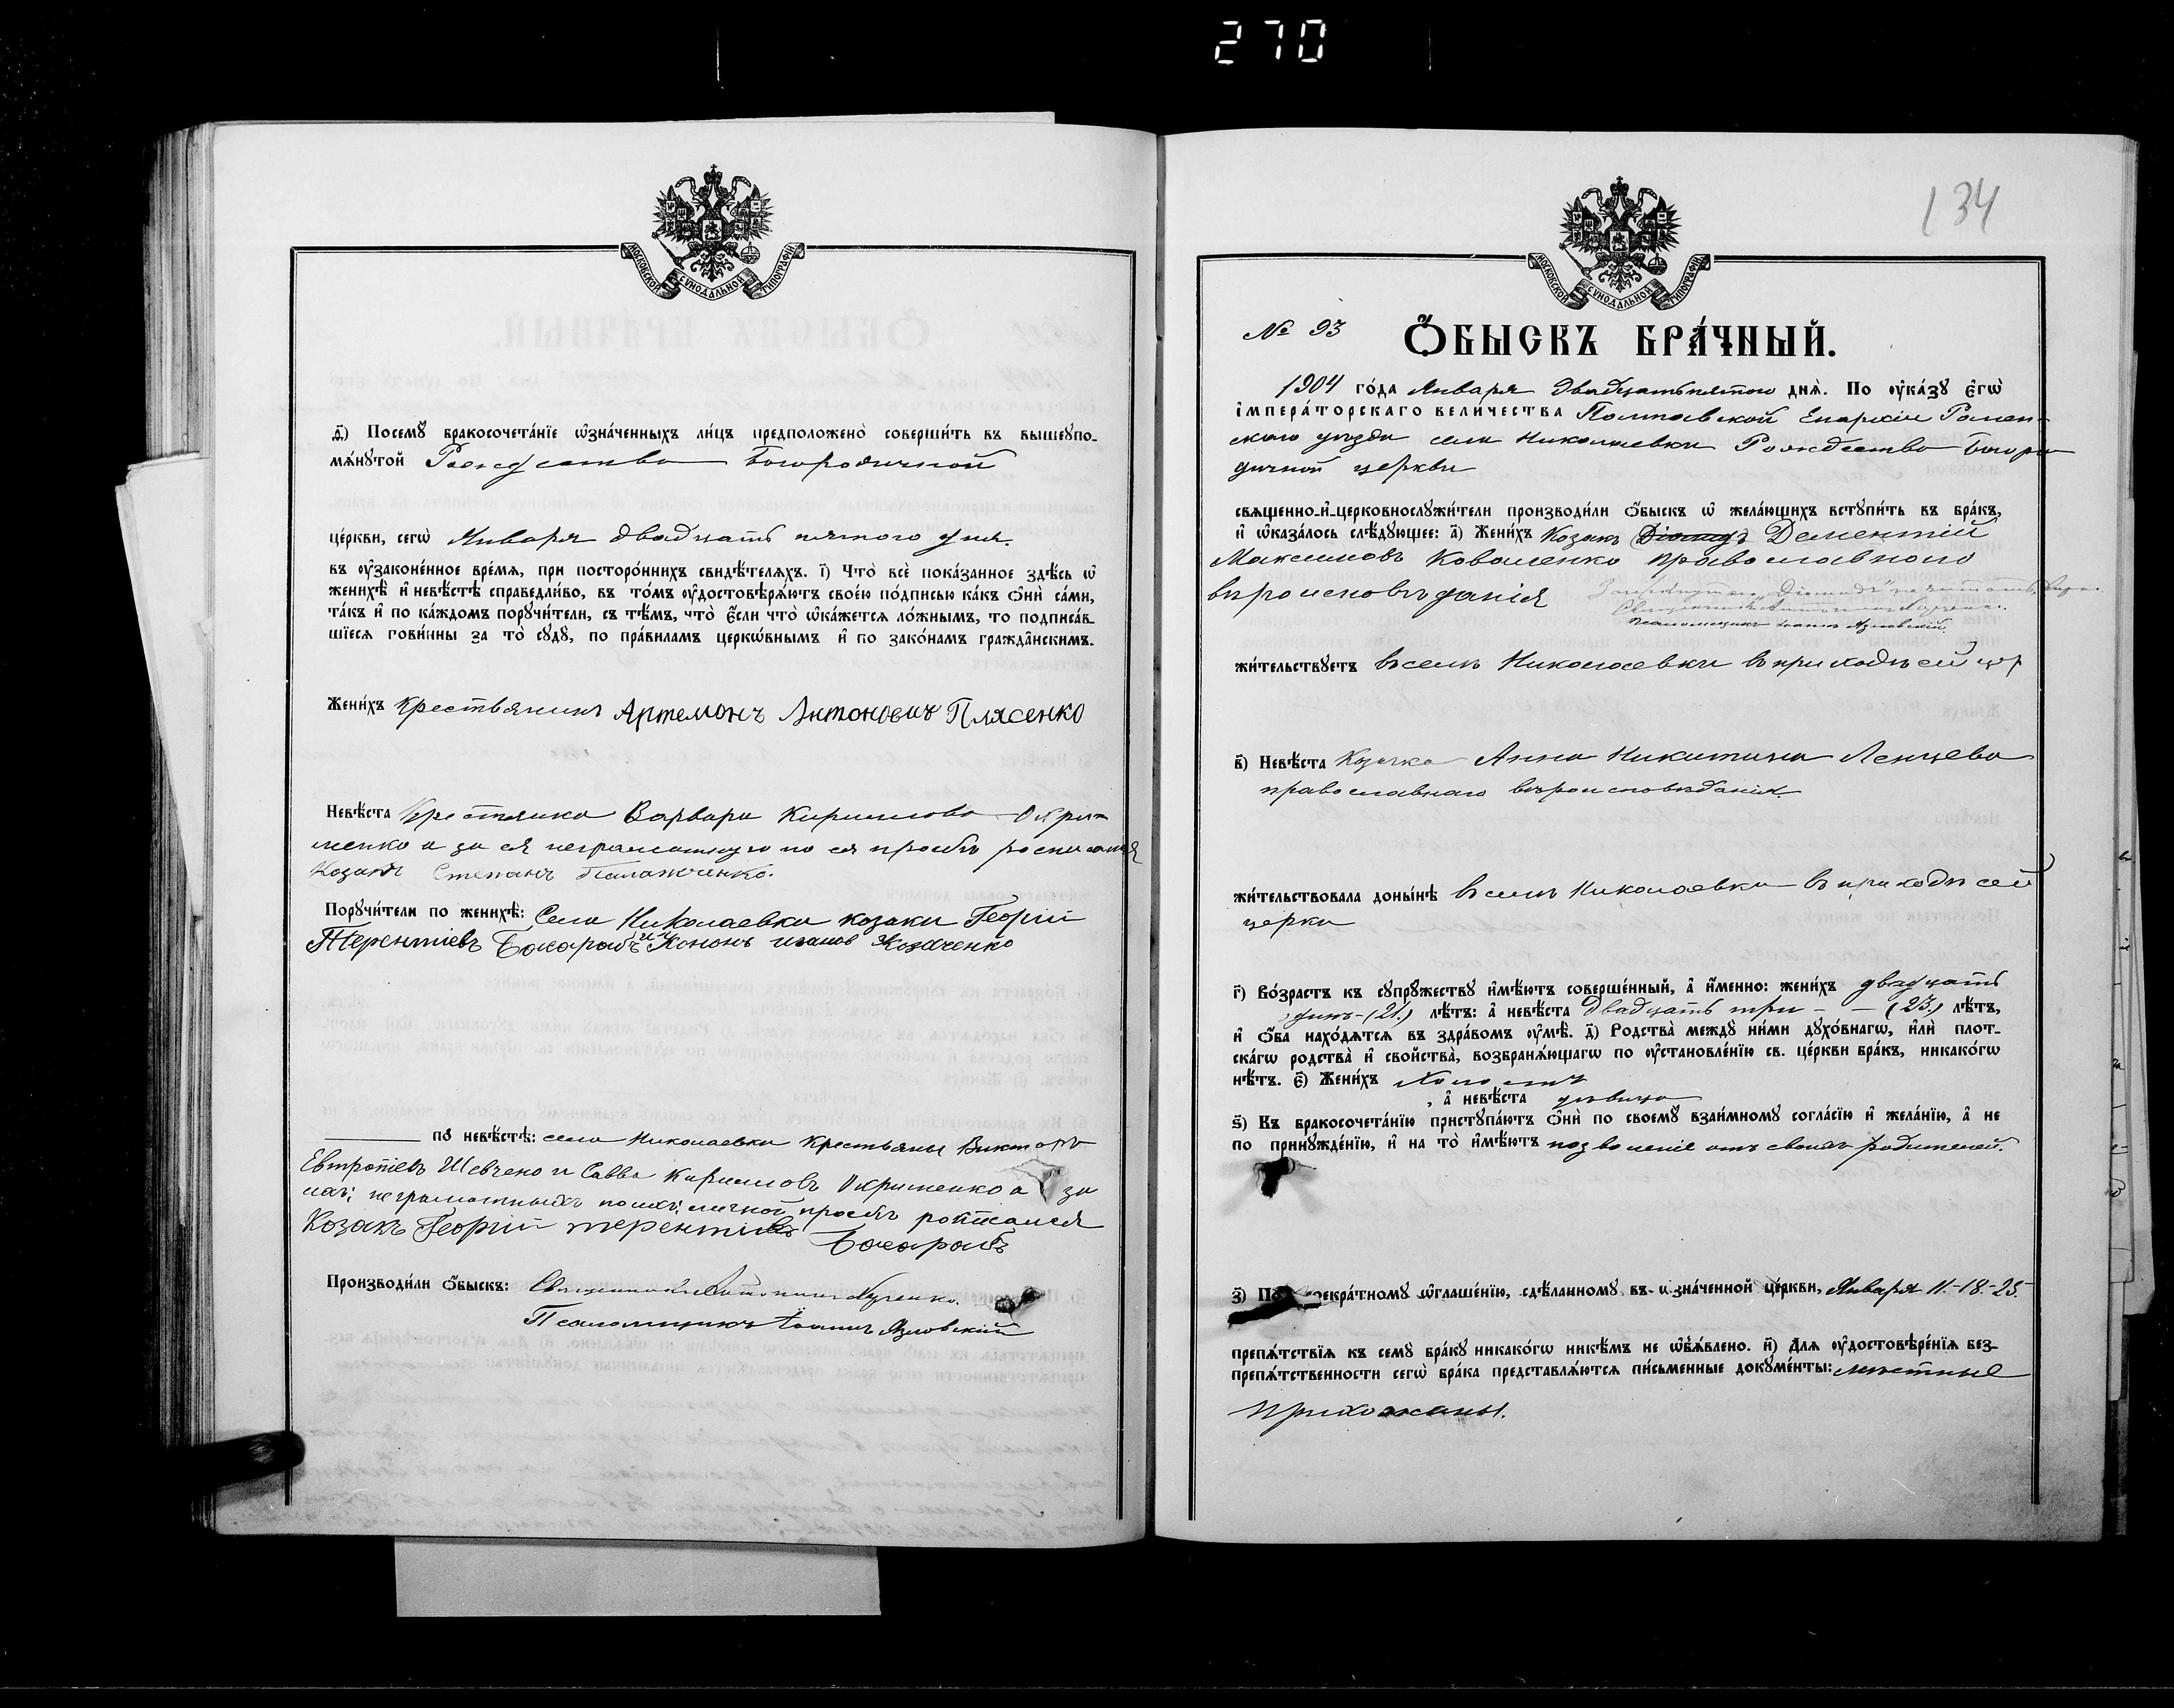 270
МОСКОВСКОЙ СѴНОДАЛЬНОЙ ТИПОГРАФІИ
д҃) Посемꙋ̀ бракосочета́нїе ѡ҆зна́ченныхъ ли́цъ предположено̀ соверши́ть въ вышеꙋпо-
мѧ́нꙋтой Рождество Богородичной
це́ркви, сегѡ̀ Января двадцать пятого дня.
въ ᲂу҆законе́нное вре́мѧ, при посторо́ннихъ свидѣ́телѧхъ. і҃) Что̀ всѐ пока́занное здѣ́сь ѡ҆
женихѣ̀ и҆ невѣ́стѣ справедли́во, въ то́мъ ᲂу҆достовѣрѧ́ютъ свое́ю по́дписью ка́къ ѻ҆нѝ са́ми,
та́къ и҆ по ка́ждомъ порꙋчи́тели, съ тѣ́мъ, что̀ є҆́сли что̀ ѡ҆ка́жетсѧ ло́жнымъ, то подписа́в-
шїесѧ пови́нны за то̀ сꙋдꙋ̀, по пра́виламъ церкѡ́внымъ и҆ по зако́намъ гражда̂нскимъ.
Жени́хъ Крестьянинъ Артемонъ Антоновичъ Плясенко
Невѣ́ста Крестянка Варвара Кирилова Охри-
менко а за ея неграмотную по ея просьбѣ росписался
Козакъ Степанъ Палажченко.
Порꙋчи́тели по женихѣ̀: Села Николаевки козаки Георгій
Терентіевъ Бохоровъ и Кононъ иванов Козаченко
по невѣ́стѣ: села Николаевки Крестьяны Викторъ
Евтропіевъ Шевчено и Савва Кириловъ Охрименко а за
ихъ неграмотныхъ по ихъ личной просьбѣ росписался
Козакъ Георгій терентіевъ
Бохоровъ
Производи́ли ѻ҆́быскъ: Священникъ Антоній
Псаломщикъ Іоаннъ Язловскій
134
МОСКОВСКОЙ СѴНОДАЛЬНОЙ ТИПОГРАФІИ
№ 93 Ѻ҆́БЫСКЪ БРА́ЧНЫЙ.
1904 го́да Января двадцатьпятого днѧ̀. По ᲂу҆ка́зꙋ є҆гѡ̀
і҆мпера́торскагѡ вели́чества Полтавской Епархіи Ромен-
скаго уѣзда села Николаевки Рождество Богоро
дичной церкви
свѧще́нно-и҆-церковнослꙋжи́тели производи́ли ѻ҆́быскъ ѡ҆ жела́ющихъ встꙋпи́ть въ бра́къ,
и҆ ѡ҆каза́лось слѣ́дꙋющее: а҃) Жени́хъ Козакъ Діомидъ Дементій
Максимовъ Коваленко православного
вѣроисповѣданія Зачеркнутое „Діомидъ" не читать вѣрно.
Священникъ Антоній
Псаломщикъ Іоаннъ Язловскій.
жи́тельствꙋетъ въ селѣ Николаевки въ приходѣ сей цер
в҃) Невѣ́ста Козачка Анна Никитина Ленцева
православнаго вѣроисповѣданія.
жи́тельствовала доны́нѣ въ селѣ Николаевки въ приходѣ сей
церкви
г҃) Во́зрастъ къ сꙋпрꙋ́жествꙋ и҆мѣ́ютъ соверше́нный, а҆ и҆́менно: жени́хъ двадцать
одинъ-(21.) лѣ́тъ: а҆ невѣ́ста двадцать три - - (23.) лѣ́тъ,
и҆ ѻ҆́ба нахо́дѧтсѧ въ здра́вомъ ᲂу҆мѣ̀. д҃) Родства̀ междꙋ̀ ни́ми дꙋхо́внагѡ, и҆лѝ плот-
ска́гѡ родства̀ и҆ сво́йства̀, возбранѧ́ющагѡ по ᲂу҆становле́нїю св. це́ркви бра́къ, никако́гѡ
нѣ́тъ. є҃) Жени́хъ холостъ
, а҆ невѣ́ста дѣвица
ѕ҃) Къ бракосочета́нїю пристꙋпа́ютъ ѻ҆нѝ по своемꙋ̀ взаи́мномꙋ согла́сїю и҆ жела́нїю, а҆ не
по принꙋжде́нїю, и҆ на то̀ и҆мѣ́ютъ позволеніе отъ своихъ родителей.
з҃) По рекра́тномꙋ ѡ҆глаше́нїю, сдѣ́ланномꙋ въ ѡзна́ченной це́ркви, Января 11-18-25.
препѧ́тствїѧ къ семꙋ̀ бра́кꙋ никако́гѡ никѣ́мъ не ѡ҆б̾ѧ́влено. и҃) Длѧ ᲂу҆достовѣре́нїѧ без-
препѧ́тственности сегѡ̀ бра́ка представлѧ́ютсѧ пи́сьменные докꙋме́нты: мѣстные
прихожаны.